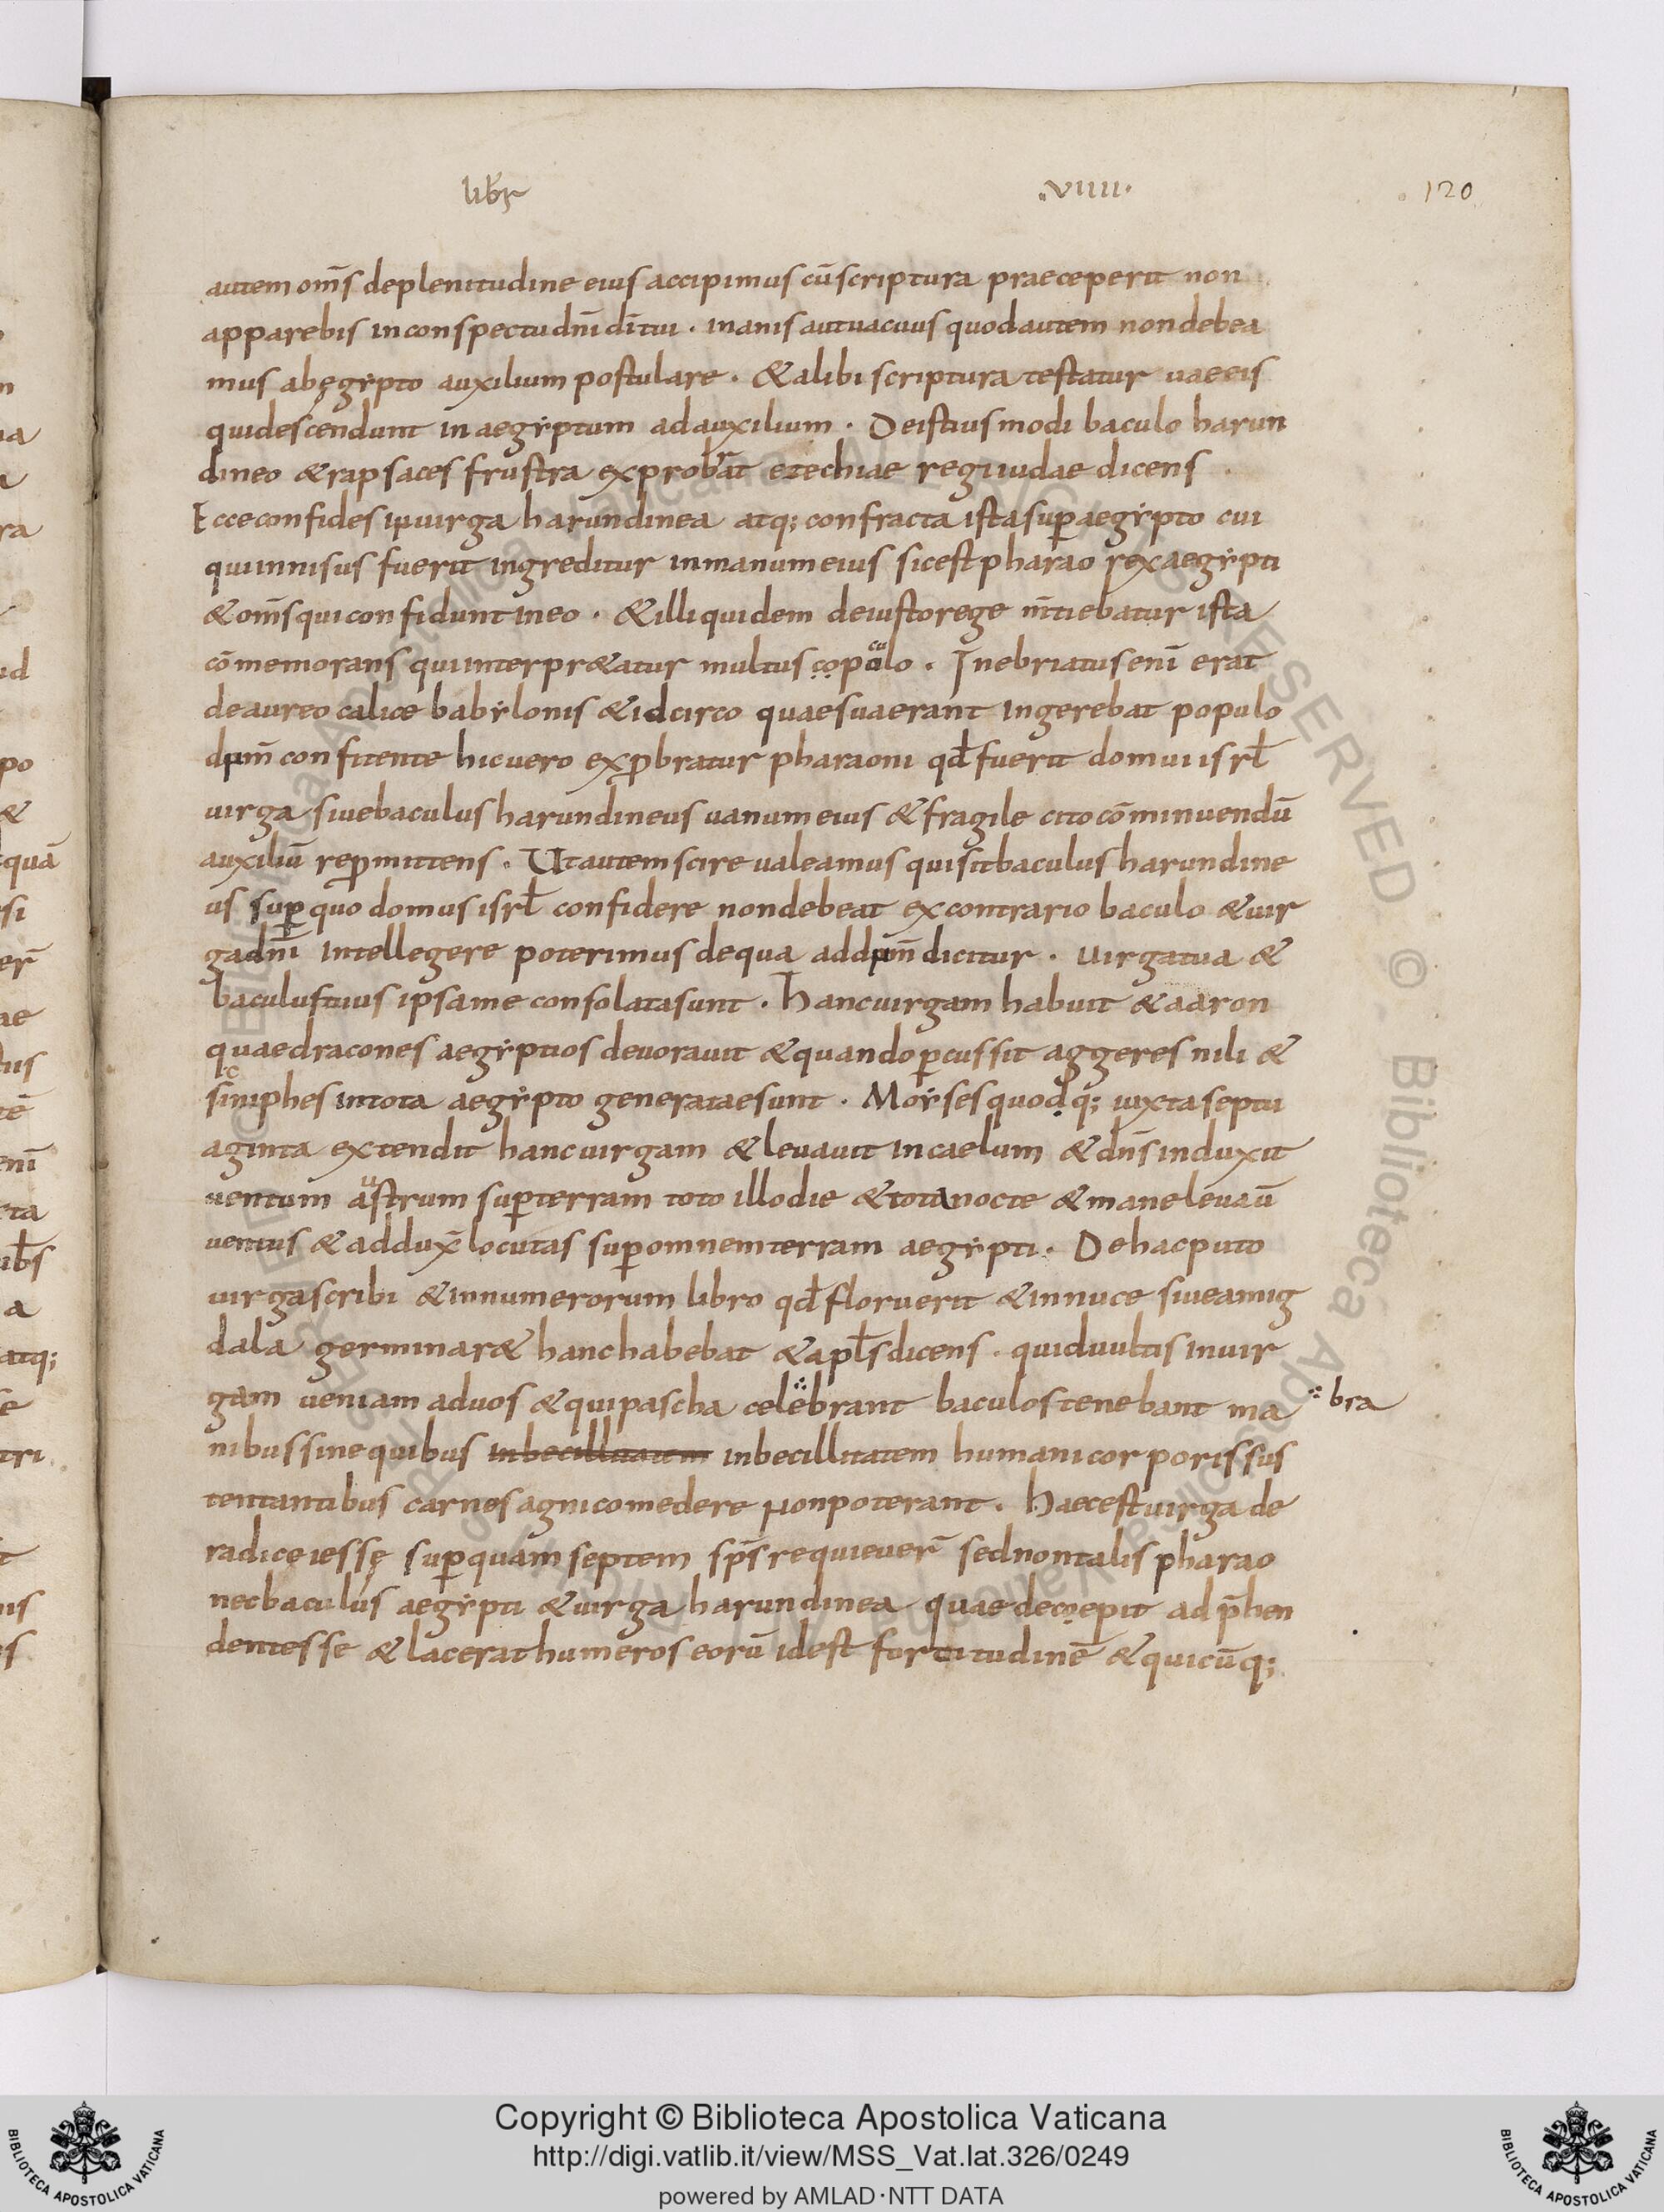 libr̄ .VIIII. 120
autem om̄s deplenitudine eius accipimus cūscriptura praeceperit non
apparebis inconspectu dn̄i dī tui . inanis aut uacuus quod autem non debea
mus ab ęgẏpto auxilium postulare . & alibi scriptura testatur uae eis
qui descendunt in aegẏptum ad auxilium . De istius modi baculo harun
dineo & rapsaces frustra exprobrat ezechiae regi iudae dicens
Ecce confides in uirga harundinea atq; confracta ista sup̱ aegẏpto cui
qui innisus fuerit ingreditur in manum eius sic est pharao rex aegẏpti
& om̄s qui confidunt in eo . & illi quidem de iusto rege m̄tiebatur ista
cōmemorans qui interpr&atur multus copolo . Inebriatus enī erat
de aureo calice babẏlonis & idcirco quae sua erant ingerebat populo
dm̄ confitente hic uero exp̱bratur pharaoni qđ fuerit domui isrł
uirga siue baculus harundineus uanum eius & fragile cito cōminuendū
auxiliū rep̱mittens . Ut autem scire ualeamus qui sit baculus harundine
us sup̱ quo domus isrł confidere non debeat ex contrario baculo & uir
ga dn̄i intellegere poterimus de qua ad dm̄ dicitur . uirga tua &
baculus tuus ipsa me consolata sunt . Hanc uirgam habuit & aaron
quae dracones aegẏptios deuorauit & quando p̱cussit aggeres nili &
siniphes in tota aegẏpto generatae sunt . Moẏses quodq; iuxta septu
aginta extendit hanc uirgam & leuauit in caelum & dn̄s induxit
uentum austrum sup̱ terram toto illo die & tota nocte & mane leuaū
uentus & addux̄ locutas sup̱ omnem terram aegẏpti . De hac puto
uirga scribi & in numerorum libro qđ floruerit & in nuce siue amig
dala germinar& hanc habebat & apłs dicens . quid uultis in uir
gam ueniam ad uos & qui pascha celebrant baculos tenebant ma bra
nibus sine quibus inbecillitatem inbecillitatem humani corporis sus
tentantibus carnes agni comedere non poterant . Haec est uirga de
radice iessę sup̱ quam septem sp̄s requieuer̄ sed non talis pharao
nec baculus aegẏpti & uirga harundinea quae decepit adp̄hen
dentes se & lacerat humeros eorū id est fortitudinē & quicūq;
Copyright © Biblioteca Apostolica Vaticana
http://digi.vatlib.it/view/MSS_Vat.lat.326/0249
powered by AMLAD·NTT DATA
BIBLIOTECA APOSTOLICA VATICANA
BIBLIOTECA APOSTOLICA VATICANA